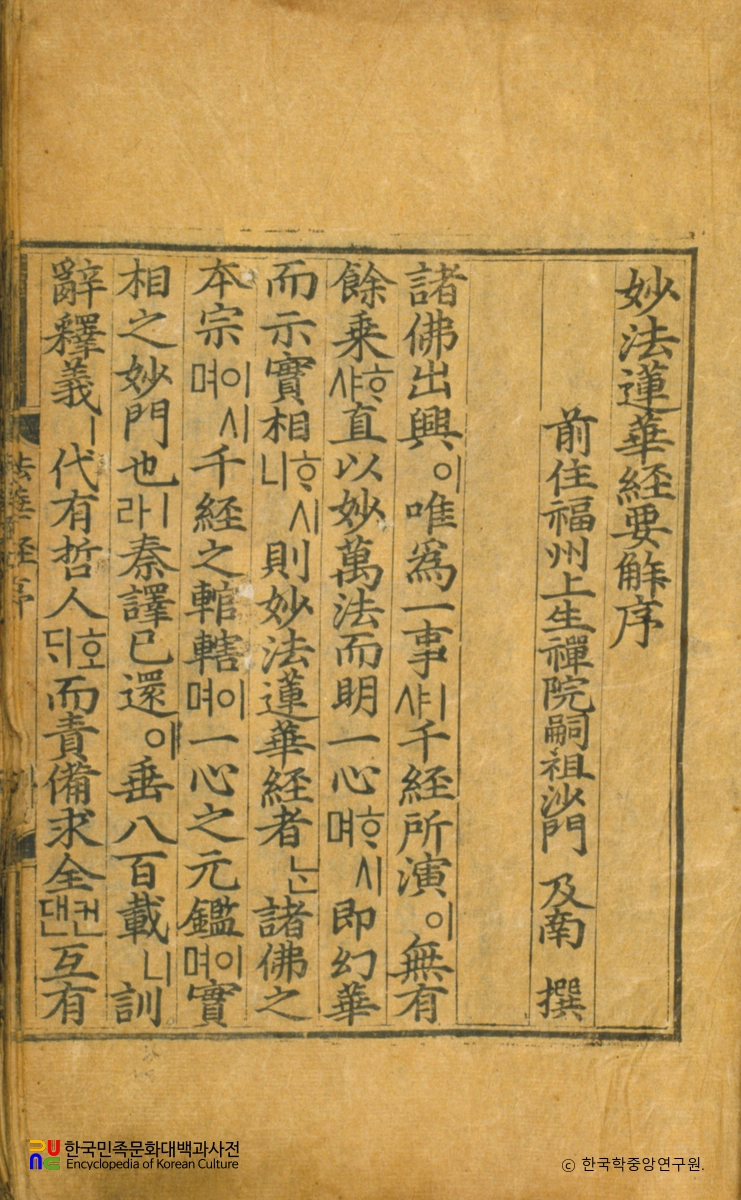 妙法蓮華経要解序
前住福州上生禪院嗣祖沙門 及南 撰
諸佛出興이唯爲一事ㅣ샤千経所演이無有
餘乗ᄒᆞ샤直以妙萬法而明一心ᄒᆞ시며即幻華
而示實相ᄒᆞ시니則妙法蓮華経者ᄂᆞᆫ諸佛之
本宗이시며千経之轄轄이며一心之元鑑이며實
相之妙門也ㅣ라秦譯已還애垂八百載니訓
辭釋義ㅣ代有哲人호ᄃᆡ而責備求全컨댄互有
法華経序
한국민족문화대백과사전
Encyclopedia of Korean Culture
© 한국학중앙연구원.